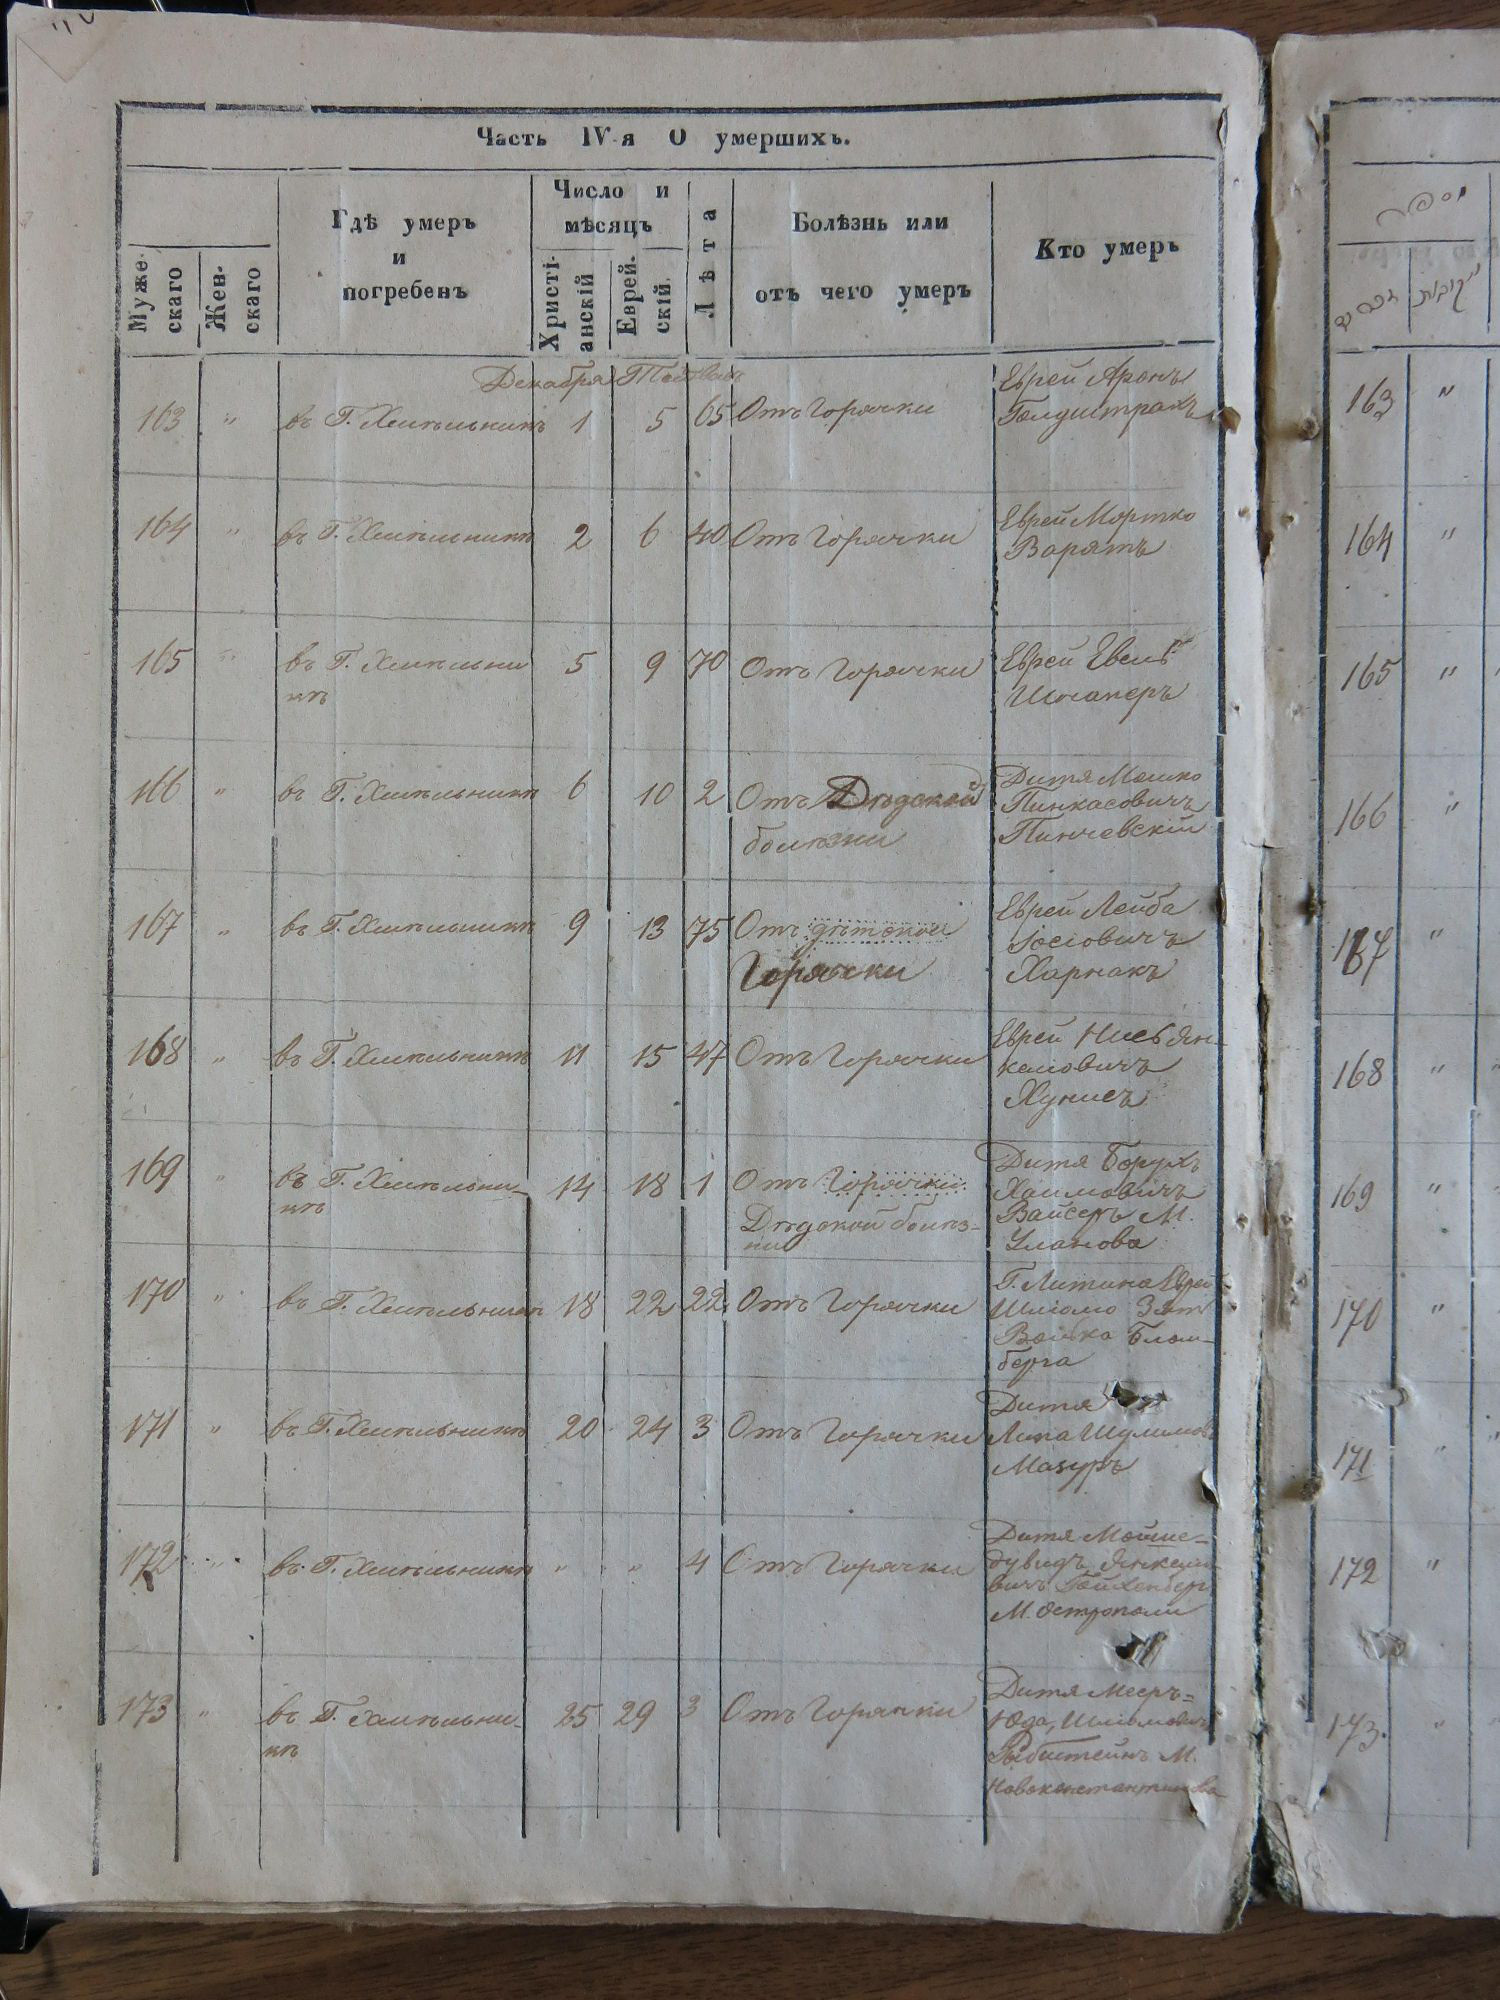 Часть IV-я О умершихъ.
Муже-скаго
Жен-скаго
Гдѣ умеръ
и
погребенъ
Число и
мѣсяцъ
Христі-анскій
Еврей-скій.
Лѣта
Болѣзнь или
отъ чего умеръ
Кто умеръ
Декабря
163 " въ Г. Хмѣльникѣ 1 5 65 Отъ Горячки Еврей Аронъ
164 " въ Г. Хмѣльникѣ 2 6 40 Отъ Горячки Еврей Мортко
165 " въ Г. Хмѣльни 5 9 70 Отъ Горячки Еврей
кѣ
166 " въ Г. Хмѣльникѣ 6 10 2 Отъ Дѣдской Дитя Мошко
болѣзни Пинкасовичъ
Пинчевскій
167 " въ Г. Хмѣльникѣ 9 13 75 Отъ дѣтской Еврей Лейба
Горячки Іосіовичъ
Харнакъ
168 " въ Г. Хмѣльникѣ 11 15 47 Отъ Горячки Еврей
169 " въ Г. Хмѣльни- 14 18 1 Отъ Горячки Дитя Борухъ
кѣ Дѣдской болѣз- Хаимовичъ
ни Вайсеръ М.
Уланова
170 " въ Г. Хмѣльникѣ 18 22 22 Отъ Горячки Г. Литина Еврей
Шліомо
берга
171 " въ Г. Хмѣльникѣ 20 24 3 Отъ Горячки Дитя
Мазуръ
172 " въ Г. Хмѣльникѣ " " 4 Отъ Горячки Дитя Мошие-
дувидъ
М. Острополи
173 " въ Г. Хмѣльни- 25 29 3 Отъ Горячки Дитя Мееръ=
кѣ Юда Шліомовичъ
М.
Новоконстантинова
163 "
164 "
165 "
166 "
167 "
168 "
169 "
170 "
171 "
172 "
173 "